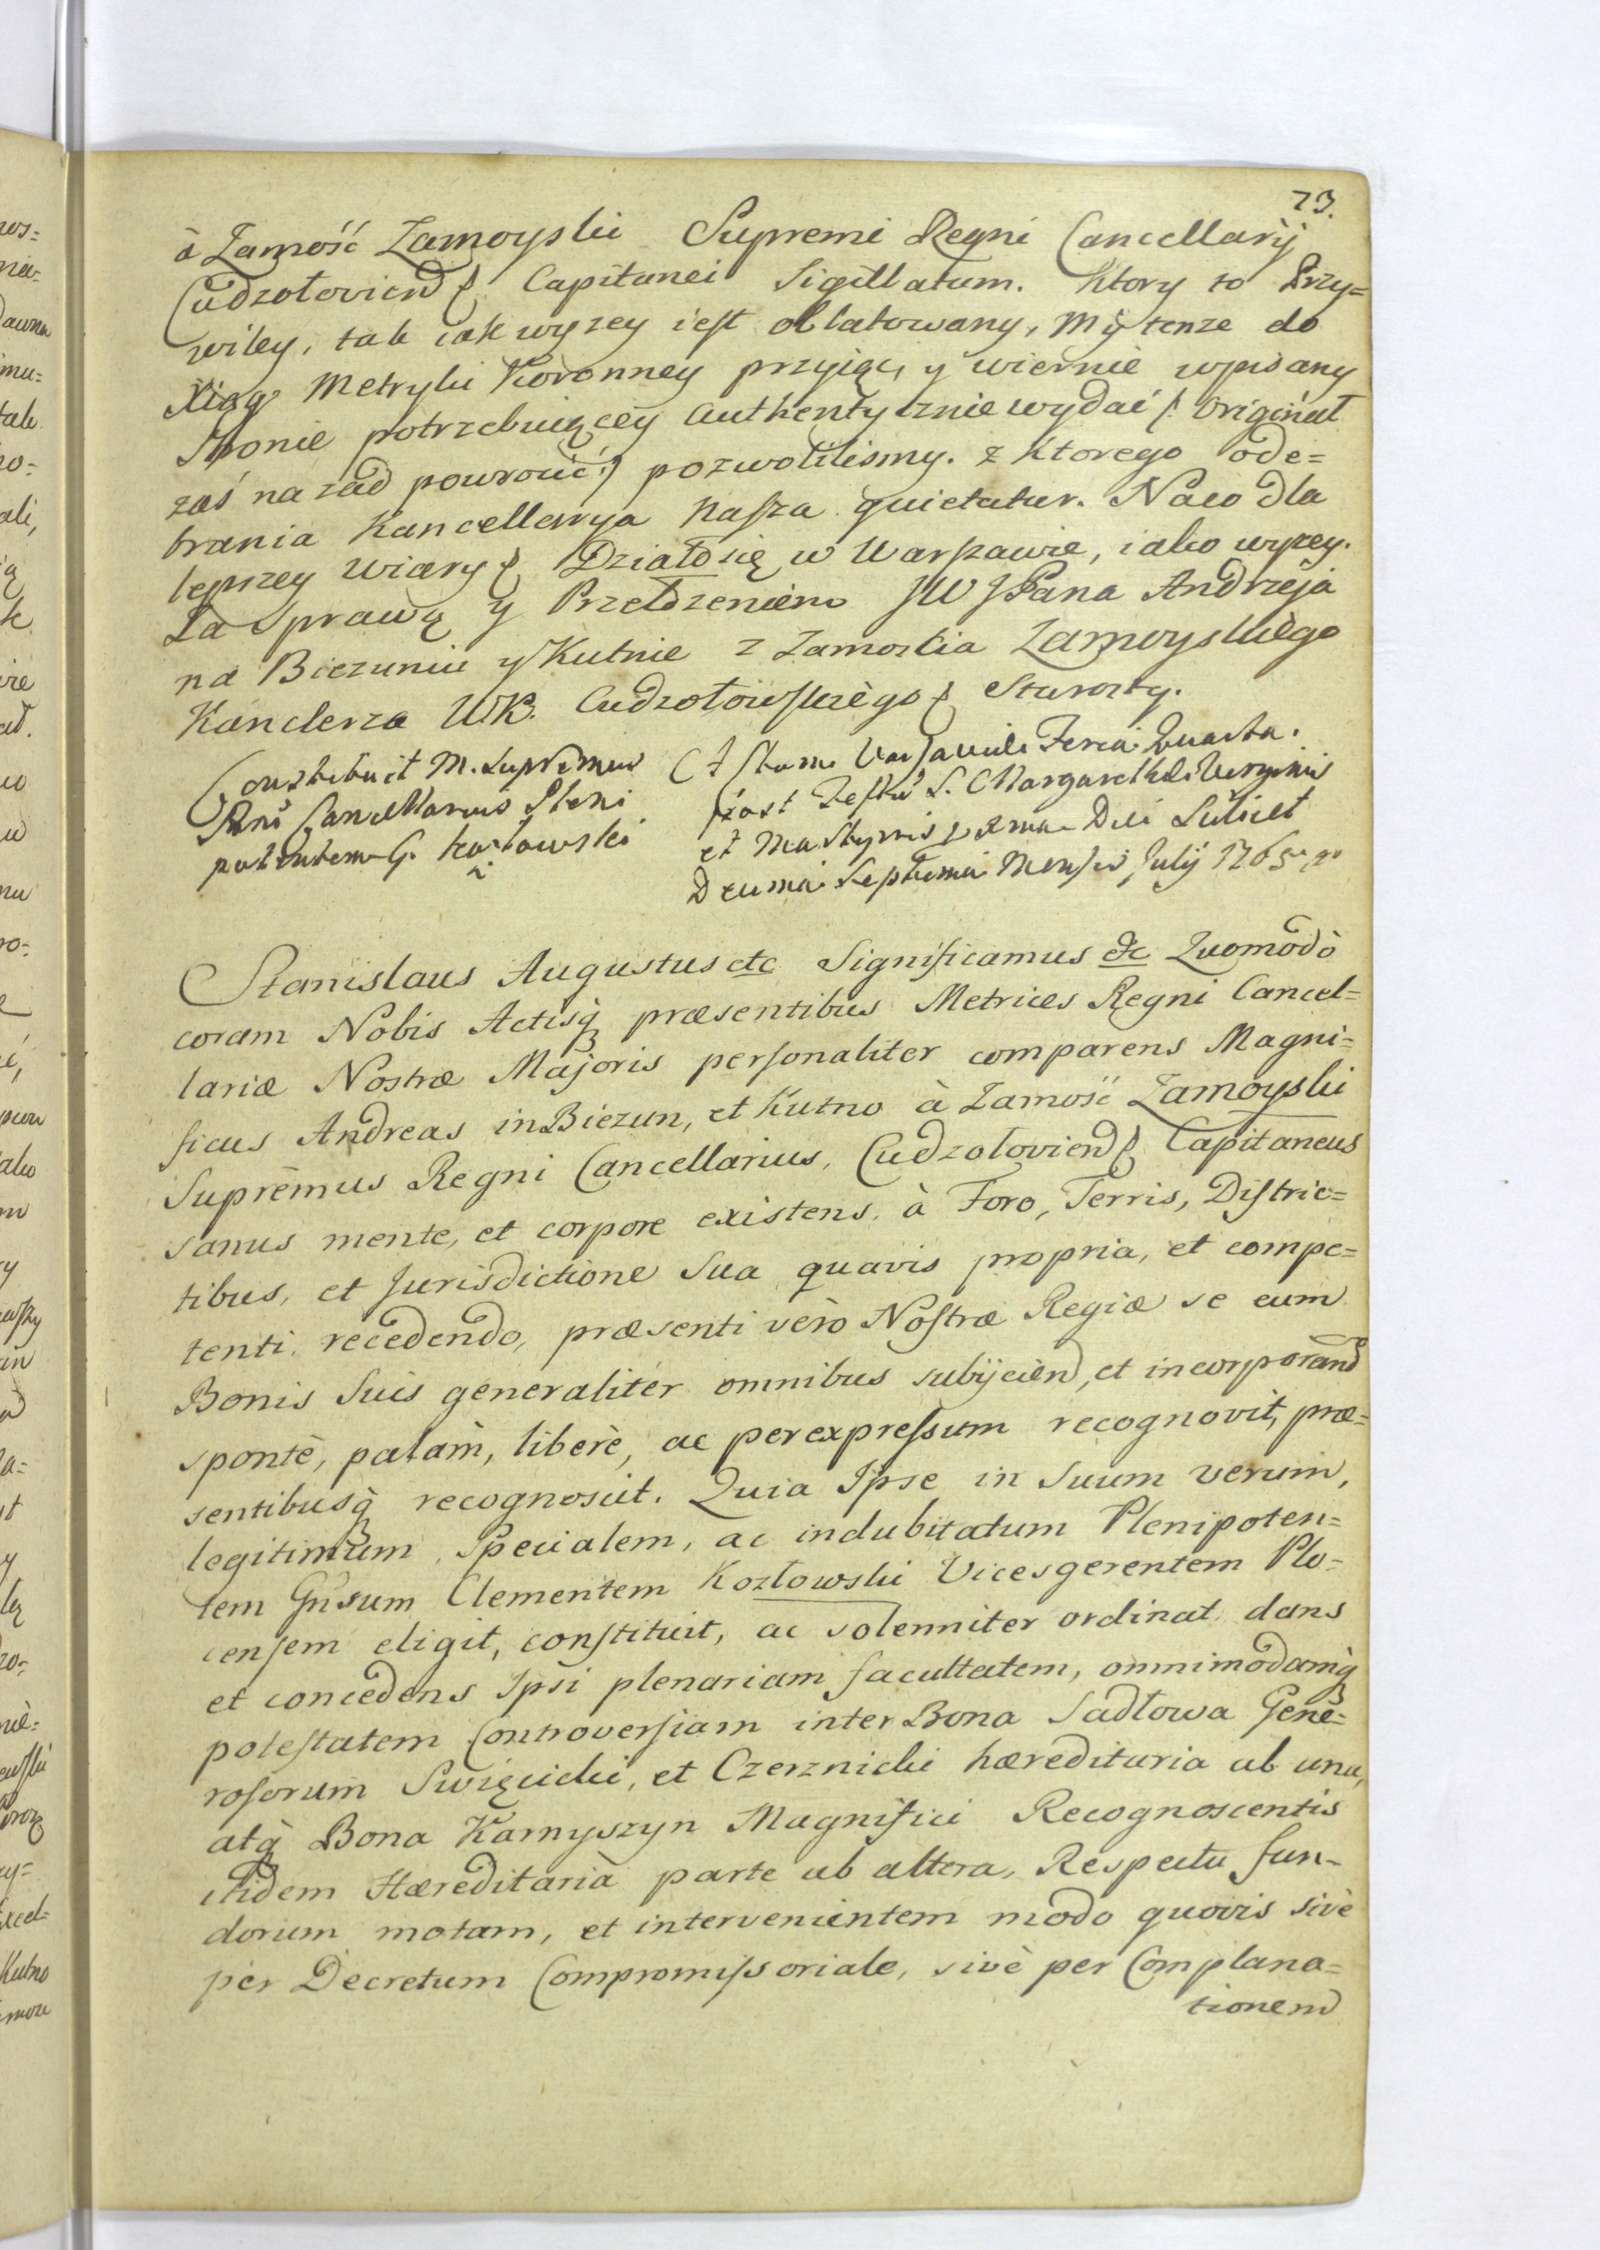 73.
à Zamość Zamoyski Supremi Regni Cancellarÿ
Cudzołoviend Capitanei Sigillatum. Ktory to Przy=
wiley, tak iak wyzey iest oblatowany, My tenze do
Xiąg Metryki Koronney przyiąć, y wiernie wpisany
Stronie potrzebuiącey authentycznie wydać /: Originał
zaś nazad powrocić :/ pozwoliliśmy. z Ktorego ode=
brania Kancellarya Nasza quietatur. Naco dla
lepszey wiary Działo się w Warszawie, iako wyzey.
Za Sprawą y Przełożeniem JW JPana Andrzeja
na Biezuniu y Kutnie z Zamościa Zamoyskiego
Kanclerza WK. Cudzołowskiego Starosty.
Constituit M. Supremus
Regni Cancellarius Pleni
potentem G. Kozłowski
Actum Varsaviae Feria Quarta
post Festum S. Margarethae Virginis
et Martyris Die Scilicet
Decima Septima Mensis July 1765
Stanislaus Augustus etc Significamus etc Quomodò
coram Nobis Actisq præsentibus Metrices Regni Cancel=
lariæ Nostræ Majoris personaliter comparens Magni=
ficus Andreas in Biezun, et Kutno à Zamość Zamoyski
Supremus Regni Cancellarius, Cudzołoviend Capitaneus
sanus mente, et corpore existens, à Foro, Terris, Distric=
tibus, et Jurisdictione Sua quavis propria, et compe=
tenti recedendo, præsenti verò Nostræ Regiæ se cum
Bonis Suis generaliter omnibus subijciend, et incorporand
spontè, palàm, liberè, ac per expressum recognovit, præ=
sentibusq recognoscit. Quia Ipse in Suum verum,
legitimum, Specialem, ac indubitatum Plenipoten=
tem Gnsum Clementem Kozłowski Vicesgerentem Plo=
censem eligit, constituit, ac solenniter ordinat, dans
et concedens Ipsi plenariam facultatem, omnimodamq
potestatem Controversiam inter Bona Sadłowa Gene=
rosorum Swięcicki, et Czerznicki hæreditaria ab una,
atq Bona Kamyszyn Magnifici Recognoscentis
itidem Hæreditaria parte ab altera, Respectu fun=
dorum motam, et intervenientem modo quovis sivè
per Decretum Compromissoriale, sivè per Complana=
tionem